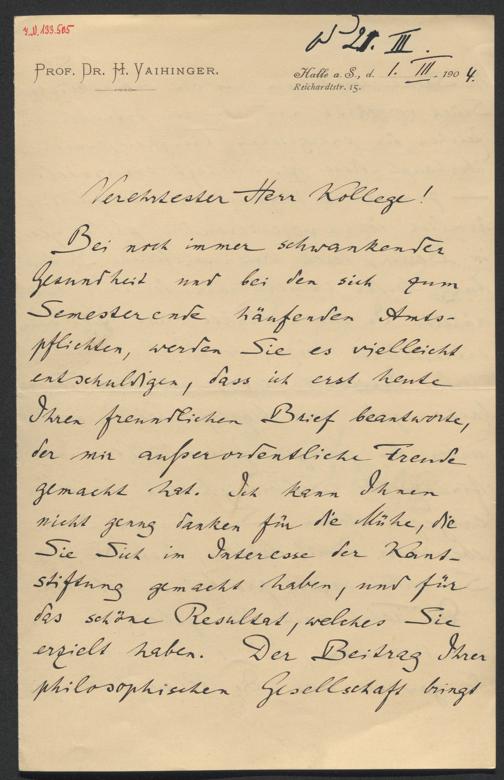 I.N. 133.505
21. III.
PROF. DR. H. VAIHINGER.
Halle a. S., d. 1. III. 1904.
Reichardtstr. 15.
Verehrtester Herr Kollege!
Bei noch immer schwankender
Gesundheit und bei den sich zum
Semesterende häufenden Amts-
pflichten, werden Sie es vielleicht
entschuldigen, dass ich erst heute
Ihren freundlichen Brief beantworte,
der mir außerordentliche Freude
gemacht hat. Ich kann Ihnen
nicht genug danken für die Mühe, die
Sie Sich im Interesse der Kant-
stiftung gemacht haben, und für
das schöne Resultat, welches Sie
erzielt haben. Der Beitrag Ihrer
philosophischen Gesellschaft bringt